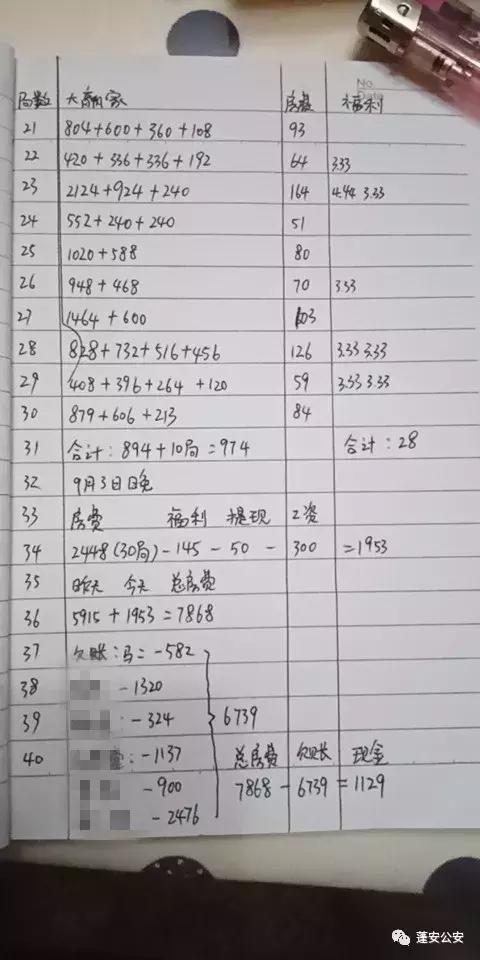 No.
Date
局数 大赢家 房费 福利
21 804+600+360+108 93
22 420+336+336+192 64 3.33
23 2124+924+240 164 4.44 3.33
24 552+240+240 51
25 1020+588 80
26 948+468 70 3.33
27 1464+600 103
28 828+732+516+456 126 3.33 3.33
29 408+396+264+120 59 3.33 3.33
30 879+606+213 84
31 合计:894+10局=974 合计:28
32 9月3日晚
33 房费 福利 提现 工资
34 2448(30局)-145-50-300=1953
35 昨天 今天 总房费
36 5915+1953=7868
37 欠账:马=-582
38 -1320
39 :-324 6739
40 :-1137 总房费 欠账 现金
-900 7868-6739=1129
-2476
蓬安公安